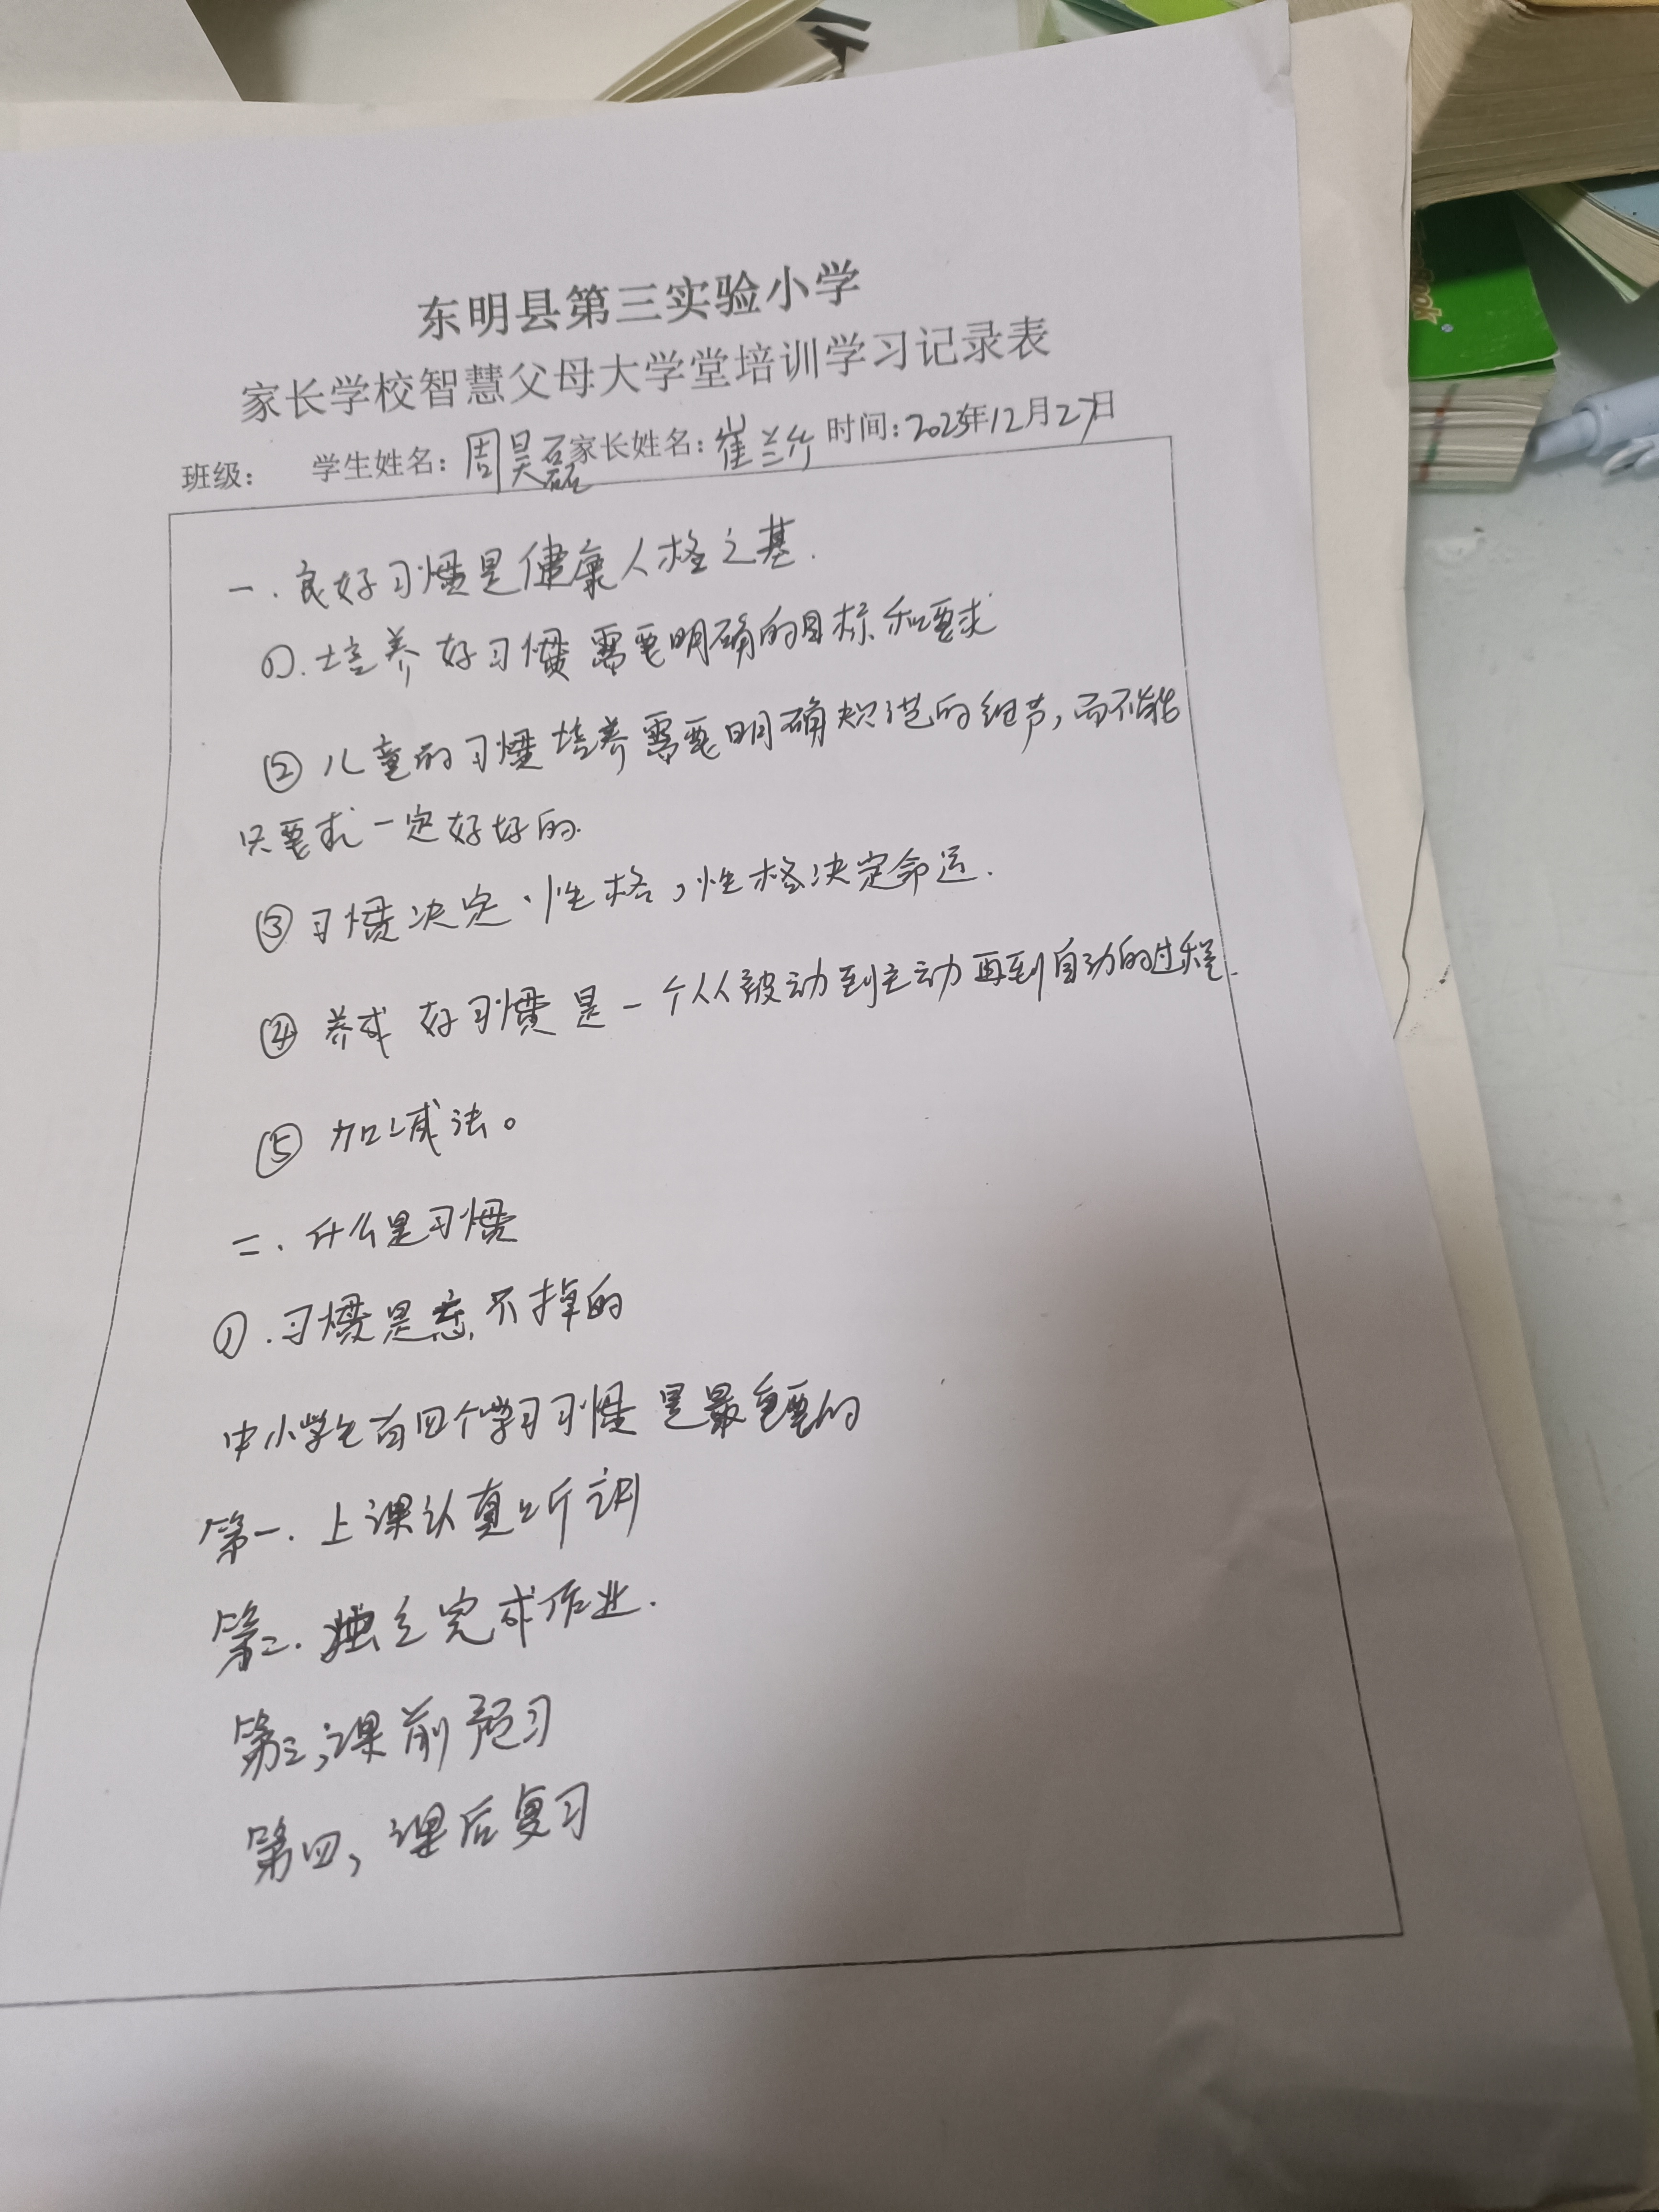 东明县第三实验小学
家长学校智慧父母大学堂培训学习记录表
班级： 学生姓名：周昊磊 家长姓名：崔兰竹 时间：2025年12月27日
一.良好习惯是健康人格之基.
①.培养好习惯需要明确的目标和要求
②儿童的习惯培养需要明确规范的细节，而不能
只要求一定好好的.
③习惯决定、性格，性格决定命运.
④养成好习惯是一个从被动到主动再到自动的过程.
⑤加减法。
二.什么是习惯
①.习惯是忘不掉的
中小学生有四个学习习惯是最重要的
第一.上课认真听讲
第二.独立完成作业.
第三，课前预习
第四，课后复习